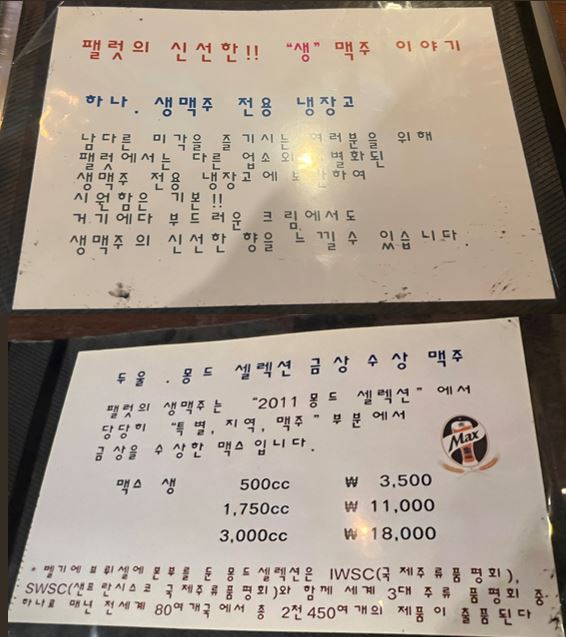 팰럿의 신선한!! "생" 맥주 이야기
하나. 생맥주 전용 냉장고
남다른 미각을 즐기시는 여러분을 위해
팰럿에서는 다른 업소와 별화된
생맥주 전용 냉장고에 보관하여
시원함은 기본!!
거기에다 부드러운 크림에서도
생맥주의 신선한 향을 느낄수 있습니다.
두울. 몽드 셀렉션 금상수상 맥주
팰럿의 생맥주는 "2011 몽드 셀렉션" 에서
당당히 "특별, 지역, 맥주" 부분에서
금상을 수상한 맥스 입니다.
Max
맥스 생 500cc ₩ 3,500
1,750cc ₩ 11,000
3,000cc ₩ 18,000
* 벨기에 브뤼셀에 본부를 둔 몽드 셀렉션은 IWSC(국제주류품평회),
SWSC(샌프란시스코 국제주류품평회)와 함께 세계 3대 주류 품평회 중
하나로 매년 전세계 80여개국에서 총 2천450여개의 제품이 출품된다